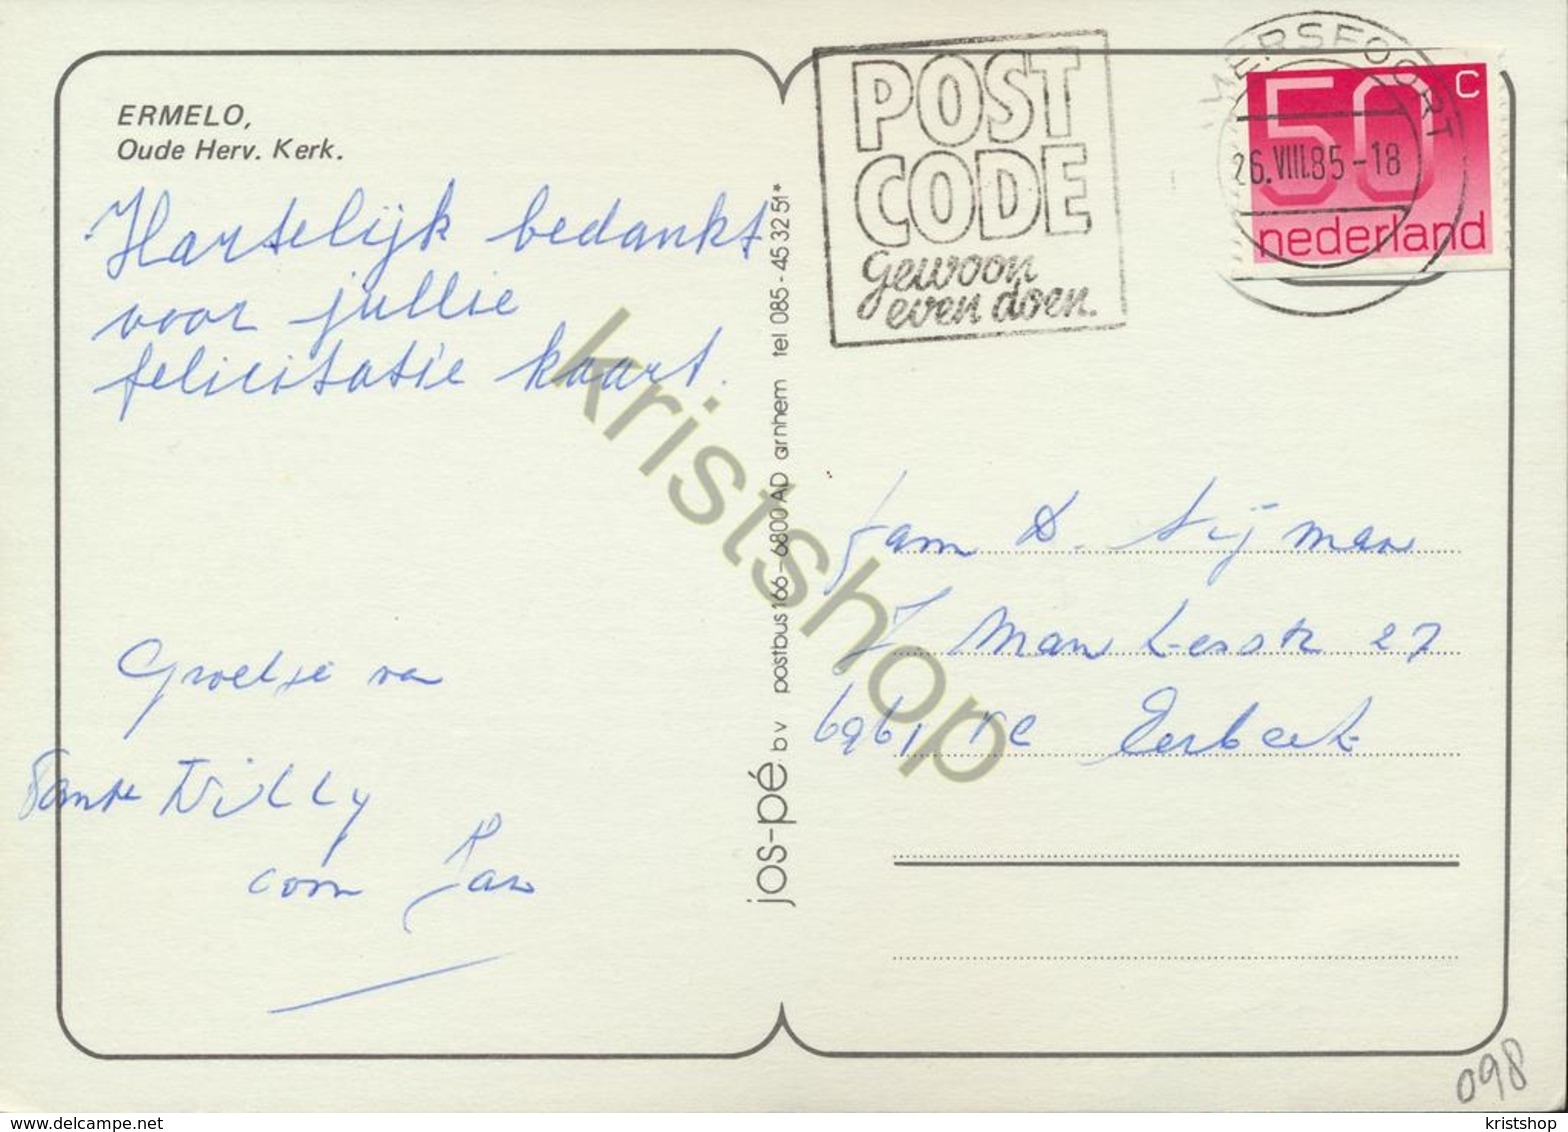 ERMELO,
Oude Herv. Kerk.
Hartelijk bedankt
voor jullie
felicitatie kaart.
Groetje van
Tante Willy
oom Jan
jos-pé bv postbus 166 - 6800 AD arnhem tel 085 - 45 32 51*
POST
CODE
gewoon
even doen.
AMERSFOORT
26.VIII.85-18
50 C
nederland
Fam D. Nijman
27
6961 Eerbeek
098
kristshop
delcampe.net
kristshop